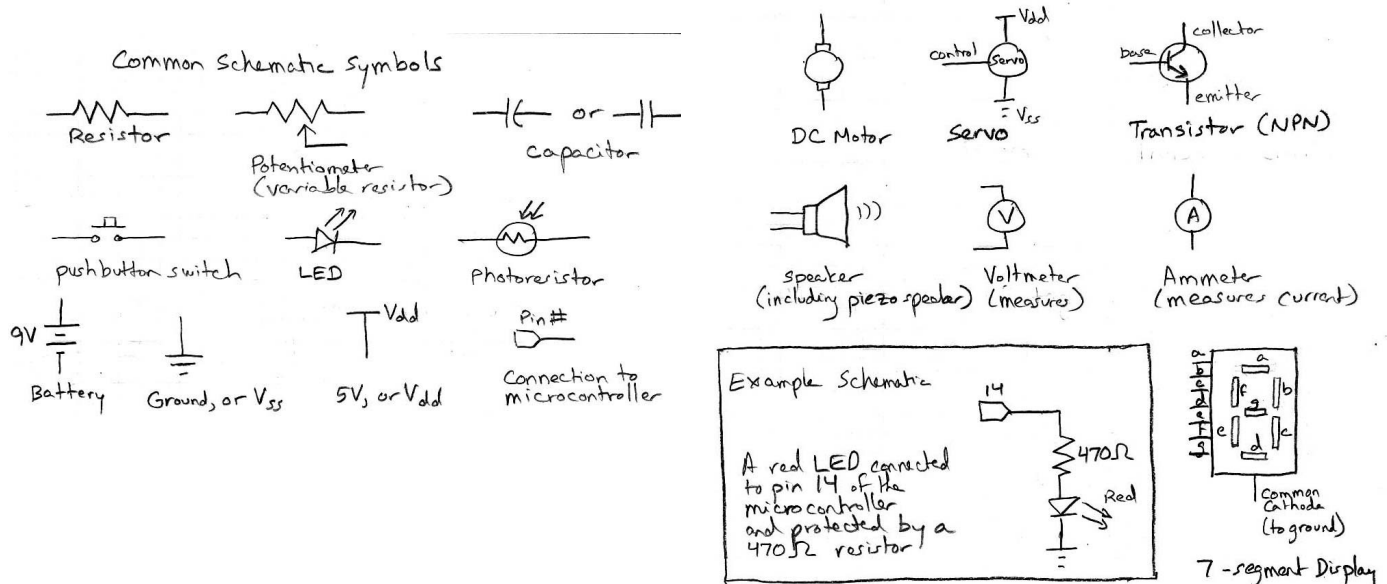 Common Schematic Symbols
Resistor
Potentiometer
(variable resistor)
or
Capacitor
pushbutton switch
LED
Photoresistor
9V
Battery
Ground, or Vss
Vdd
5V, or Vdd
Pin #
Connection to
microcontroller
DC Motor
Vdd
control
Servo
Vss
Servo
collector
base
emitter
Transistor (NPN)
speaker
(including piezo speaker)
V
Voltmeter
(measures)
A
Ammeter
(measures current)
Example Schematic
A red LED connected
to pin 14 of the
microcontroller
and protected by a
470Ω resistor
14
470Ω
Red
a
b
c
d
e
f
g
a
f
b
g
e
c
d
Common
Cathode
(to ground)
7-segment Display